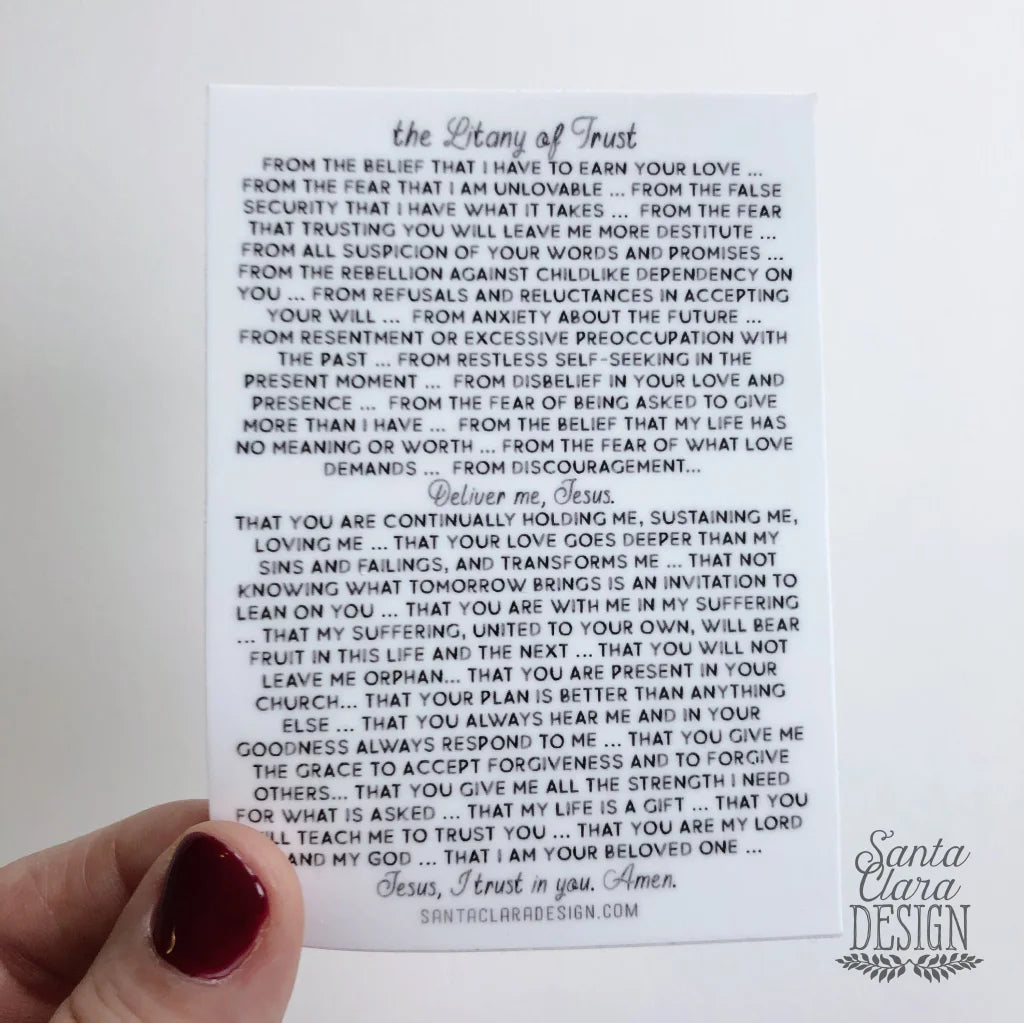 the Litany of Trust
FROM THE BELIEF THAT I HAVE TO EARN YOUR LOVE ...
FROM THE FEAR THAT I AM UNLOVABLE ... FROM THE FALSE
SECURITY THAT I HAVE WHAT IT TAKES ... FROM THE FEAR
THAT TRUSTING YOU WILL LEAVE ME MORE DESTITUTE ...
FROM ALL SUSPICION OF YOUR WORDS AND PROMISES ...
FROM THE REBELLION AGAINST CHILDLIKE DEPENDENCY ON
YOU ... FROM REFUSALS AND RELUCTANCES IN ACCEPTING
YOUR WILL ... FROM ANXIETY ABOUT THE FUTURE ...
FROM RESENTMENT OR EXCESSIVE PREOCCUPATION WITH
THE PAST ... FROM RESTLESS SELF-SEEKING IN THE
PRESENT MOMENT ... FROM DISBELIEF IN YOUR LOVE AND
PRESENCE ... FROM THE FEAR OF BEING ASKED TO GIVE
MORE THAN I HAVE ... FROM THE BELIEF THAT MY LIFE HAS
NO MEANING OR WORTH ... FROM THE FEAR OF WHAT LOVE
DEMANDS ... FROM DISCOURAGEMENT...
Deliver me, Jesus.
THAT YOU ARE CONTINUALLY HOLDING ME, SUSTAINING ME,
LOVING ME ... THAT YOUR LOVE GOES DEEPER THAN MY
SINS AND FAILINGS, AND TRANSFORMS ME ... THAT NOT
KNOWING WHAT TOMORROW BRINGS IS AN INVITATION TO
LEAN ON YOU ... THAT YOU ARE WITH ME IN MY SUFFERING
... THAT MY SUFFERING, UNITED TO YOUR OWN, WILL BEAR
FRUIT IN THIS LIFE AND THE NEXT ... THAT YOU WILL NOT
LEAVE ME ORPHAN... THAT YOU ARE PRESENT IN YOUR
CHURCH... THAT YOUR PLAN IS BETTER THAN ANYTHING
ELSE ... THAT YOU ALWAYS HEAR ME AND IN YOUR
GOODNESS ALWAYS RESPOND TO ME ... THAT YOU GIVE ME
THE GRACE TO ACCEPT FORGIVENESS AND TO FORGIVE
OTHERS... THAT YOU GIVE ME ALL THE STRENGTH I NEED
FOR WHAT IS ASKED ... THAT MY LIFE IS A GIFT ... THAT YOU
LL TEACH ME TO TRUST YOU ... THAT YOU ARE MY LORD
AND MY GOD ... THAT I AM YOUR BELOVED ONE ...
Jesus, I trust in you. Amen.
SANTACLARADESIGN.COM
Santa
Clara
DESIGN